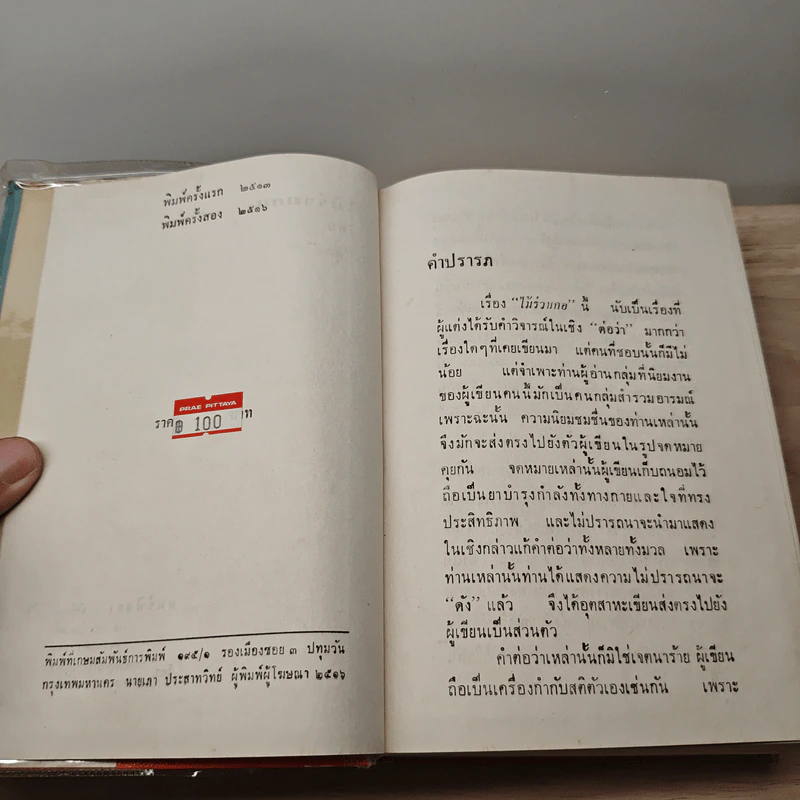 พิมพ์ครั้งแรก ๒๕๑๓
พิมพ์ครั้งสอง ๒๕๑๖
PRAE PITTAYA
ราคา ฿ 100 บาท
พิมพ์ที่เกษมสัมพันธ์การพิมพ์ ๑๙๕/๑ รองเมืองซอย ๓ ปทุมวัน
กรุงเทพมหานคร นายเภา ประสาทวิทย์ ผู้พิมพ์ผู้โฆษณา ๒๕๑๖
คำปรารภ
เรื่อง “ไม้ร่วมกอ” นี้ นับเป็นเรื่องที่
ผู้แต่งได้รับคำวิจารณ์ในเชิง “ต่อว่า” มากกว่า
เรื่องใดๆที่เคยเขียนมา แต่คนที่ชอบนั้นก็มีไม่
น้อย แต่จำเพาะท่านผู้อ่านกลุ่มที่นิยมงาน
ของผู้เขียนคนนี้มักเป็นคนกลุ่มสำรวมอารมณ์
เพราะฉะนั้น ความนิยมชมชื่นของท่านเหล่านั้น
จึงมักจะส่งตรงไปยังตัวผู้เขียนในรูปจดหมาย
คุยกัน จดหมายเหล่านั้นผู้เขียนเก็บถนอมไว้
ถือเป็นยาบำรุงกำลังทั้งทางกายและใจที่ทรง
ประสิทธิภาพ และไม่ปรารถนาจะนำมาแสดง
ในเชิงกล่าวแก้คำต่อว่าทั้งหลายทั้งมวล เพราะ
ท่านเหล่านั้นท่านได้แสดงความไม่ปรารถนาจะ
“ดัง” แล้ว จึงได้อุตสาหะเขียนส่งตรงไปยัง
ผู้เขียนเป็นส่วนตัว
คำต่อว่าเหล่านั้นก็มิใช่เจตนาร้าย ผู้เขียน
ถือเป็นเครื่องกำกับสติตัวเองเช่นกัน เพราะ